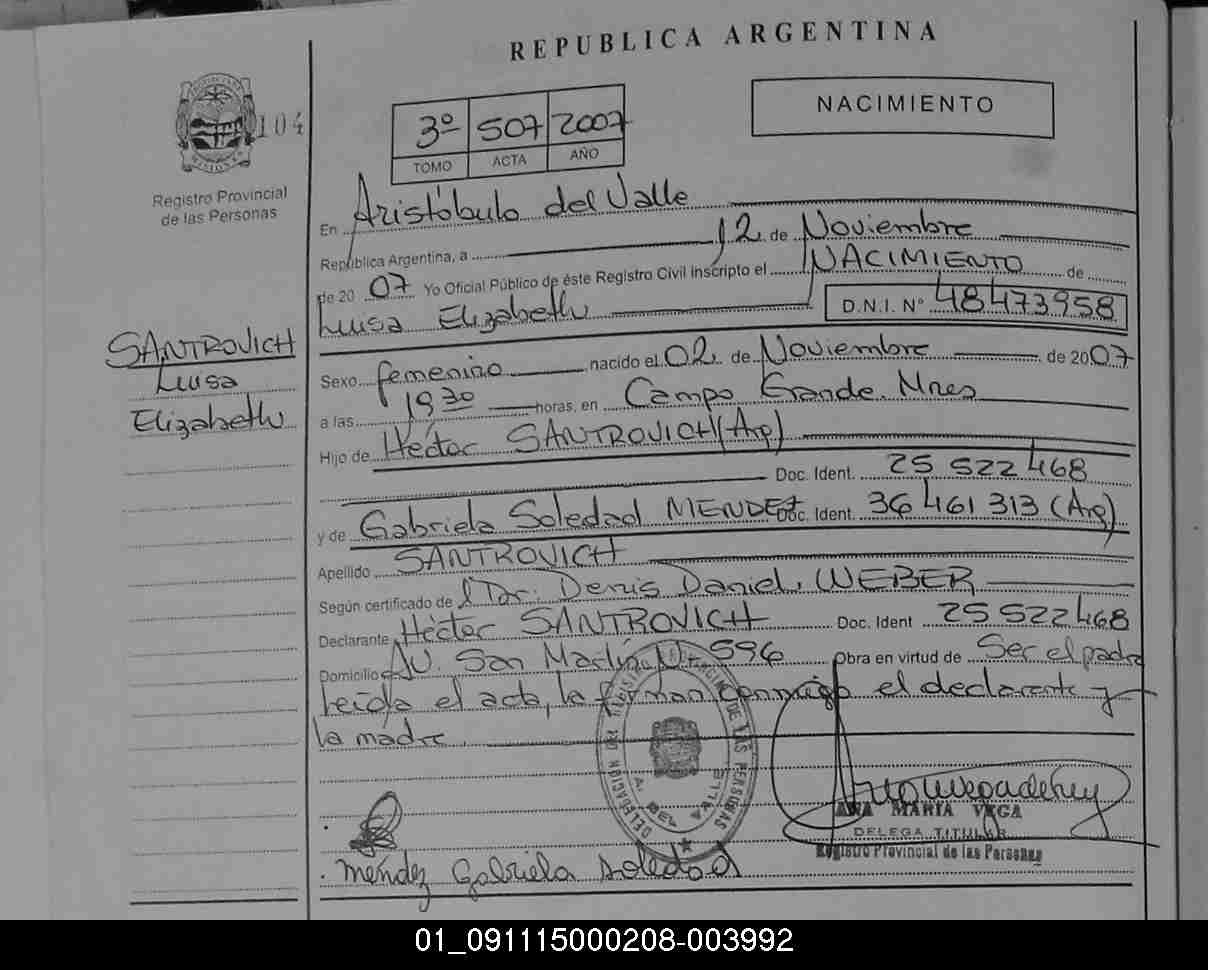 REPUBLICA ARGENTINA
NACIMIENTO
104
3º 507 2007
TOMO ACTA AÑO
Registro Provincial
de las Personas
En Aristóbulo del Valle
República Argentina, a 12 de Noviembre
de 20 07 Yo Oficial Público de éste Registro Civil inscripto el NACIMIENTO de
Luisa Elizabeth D.N.I. Nº 48473958
SANTROVICH
Luisa
Elizabeth
Sexo femenino nacido el 02 de Noviembre de 20 07
a las 19 30 horas, en Campo Grande. Mnes
Hijo de Héctor SANTROVICH (Arg)
Doc. Ident. 25 522 468
y de Gabriela Soledad MENDEZ Doc. Ident. 36 461 313 (Arg)
Apellido SANTROVICH
Según certificado de Dr. Denis Daniel WEBER
Declarante Héctor SANTROVICH Doc. Ident 25 522 468
Domicilio AV. San Martín Nº 596 Obra en virtud de Ser el padre
Leída el acta, la firman conmigo el declarante y
la madre
DELEGACION DEL REGISTRO DE LAS PERSONAS
A. DEL VALLE
ANA MARIA VEGA
DELEGA TITULAR
Registro Provincial de las Personas
Mendez Gabriela Soledad
01_091115000208-003992